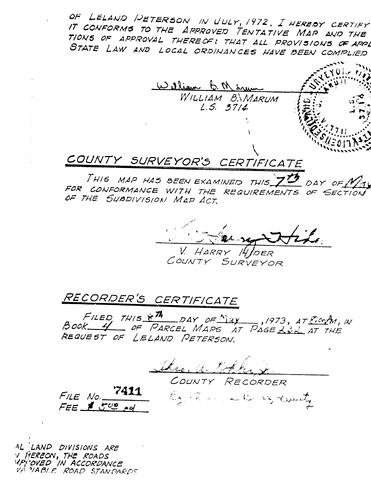 OF LELAND PETERSON IN JULY, 1972. I HEREBY CERTIFY
IT CONFORMS TO THE APPROVED TENTATIVE MAP AND THE
TIONS OF APPROVAL THEREOF; THAT ALL PROVISIONS OF APPL
STATE LAW AND LOCAL ORDINANCES HAVE BEEN COMPLIED
William B. Marum
WILLIAM B. MARUM
L.S. 3714
COUNTY SURVEYOR'S CERTIFICATE
THIS MAP HAS BEEN EXAMINED THIS 7th DAY OF May
FOR CONFORMANCE WITH THE REQUIREMENTS OF SECTION
OF THE SUBDIVISION MAP ACT.
V. HARRY HIDER
COUNTY SURVEYOR
RECORDER'S CERTIFICATE
FILED THIS 8th DAY OF May, 1973, AT M, IN
BOOK 4 OF PARCEL MAPS AT PAGE 222 AT THE
REQUEST OF LELAND PETERSON.
COUNTY RECORDER
FILE NO. 7411
FEE $ 5.00 pd
AL LAND DIVISIONS ARE
HEREON, THE ROADS
IN ACCORDANCE
ROAD STANDARDS